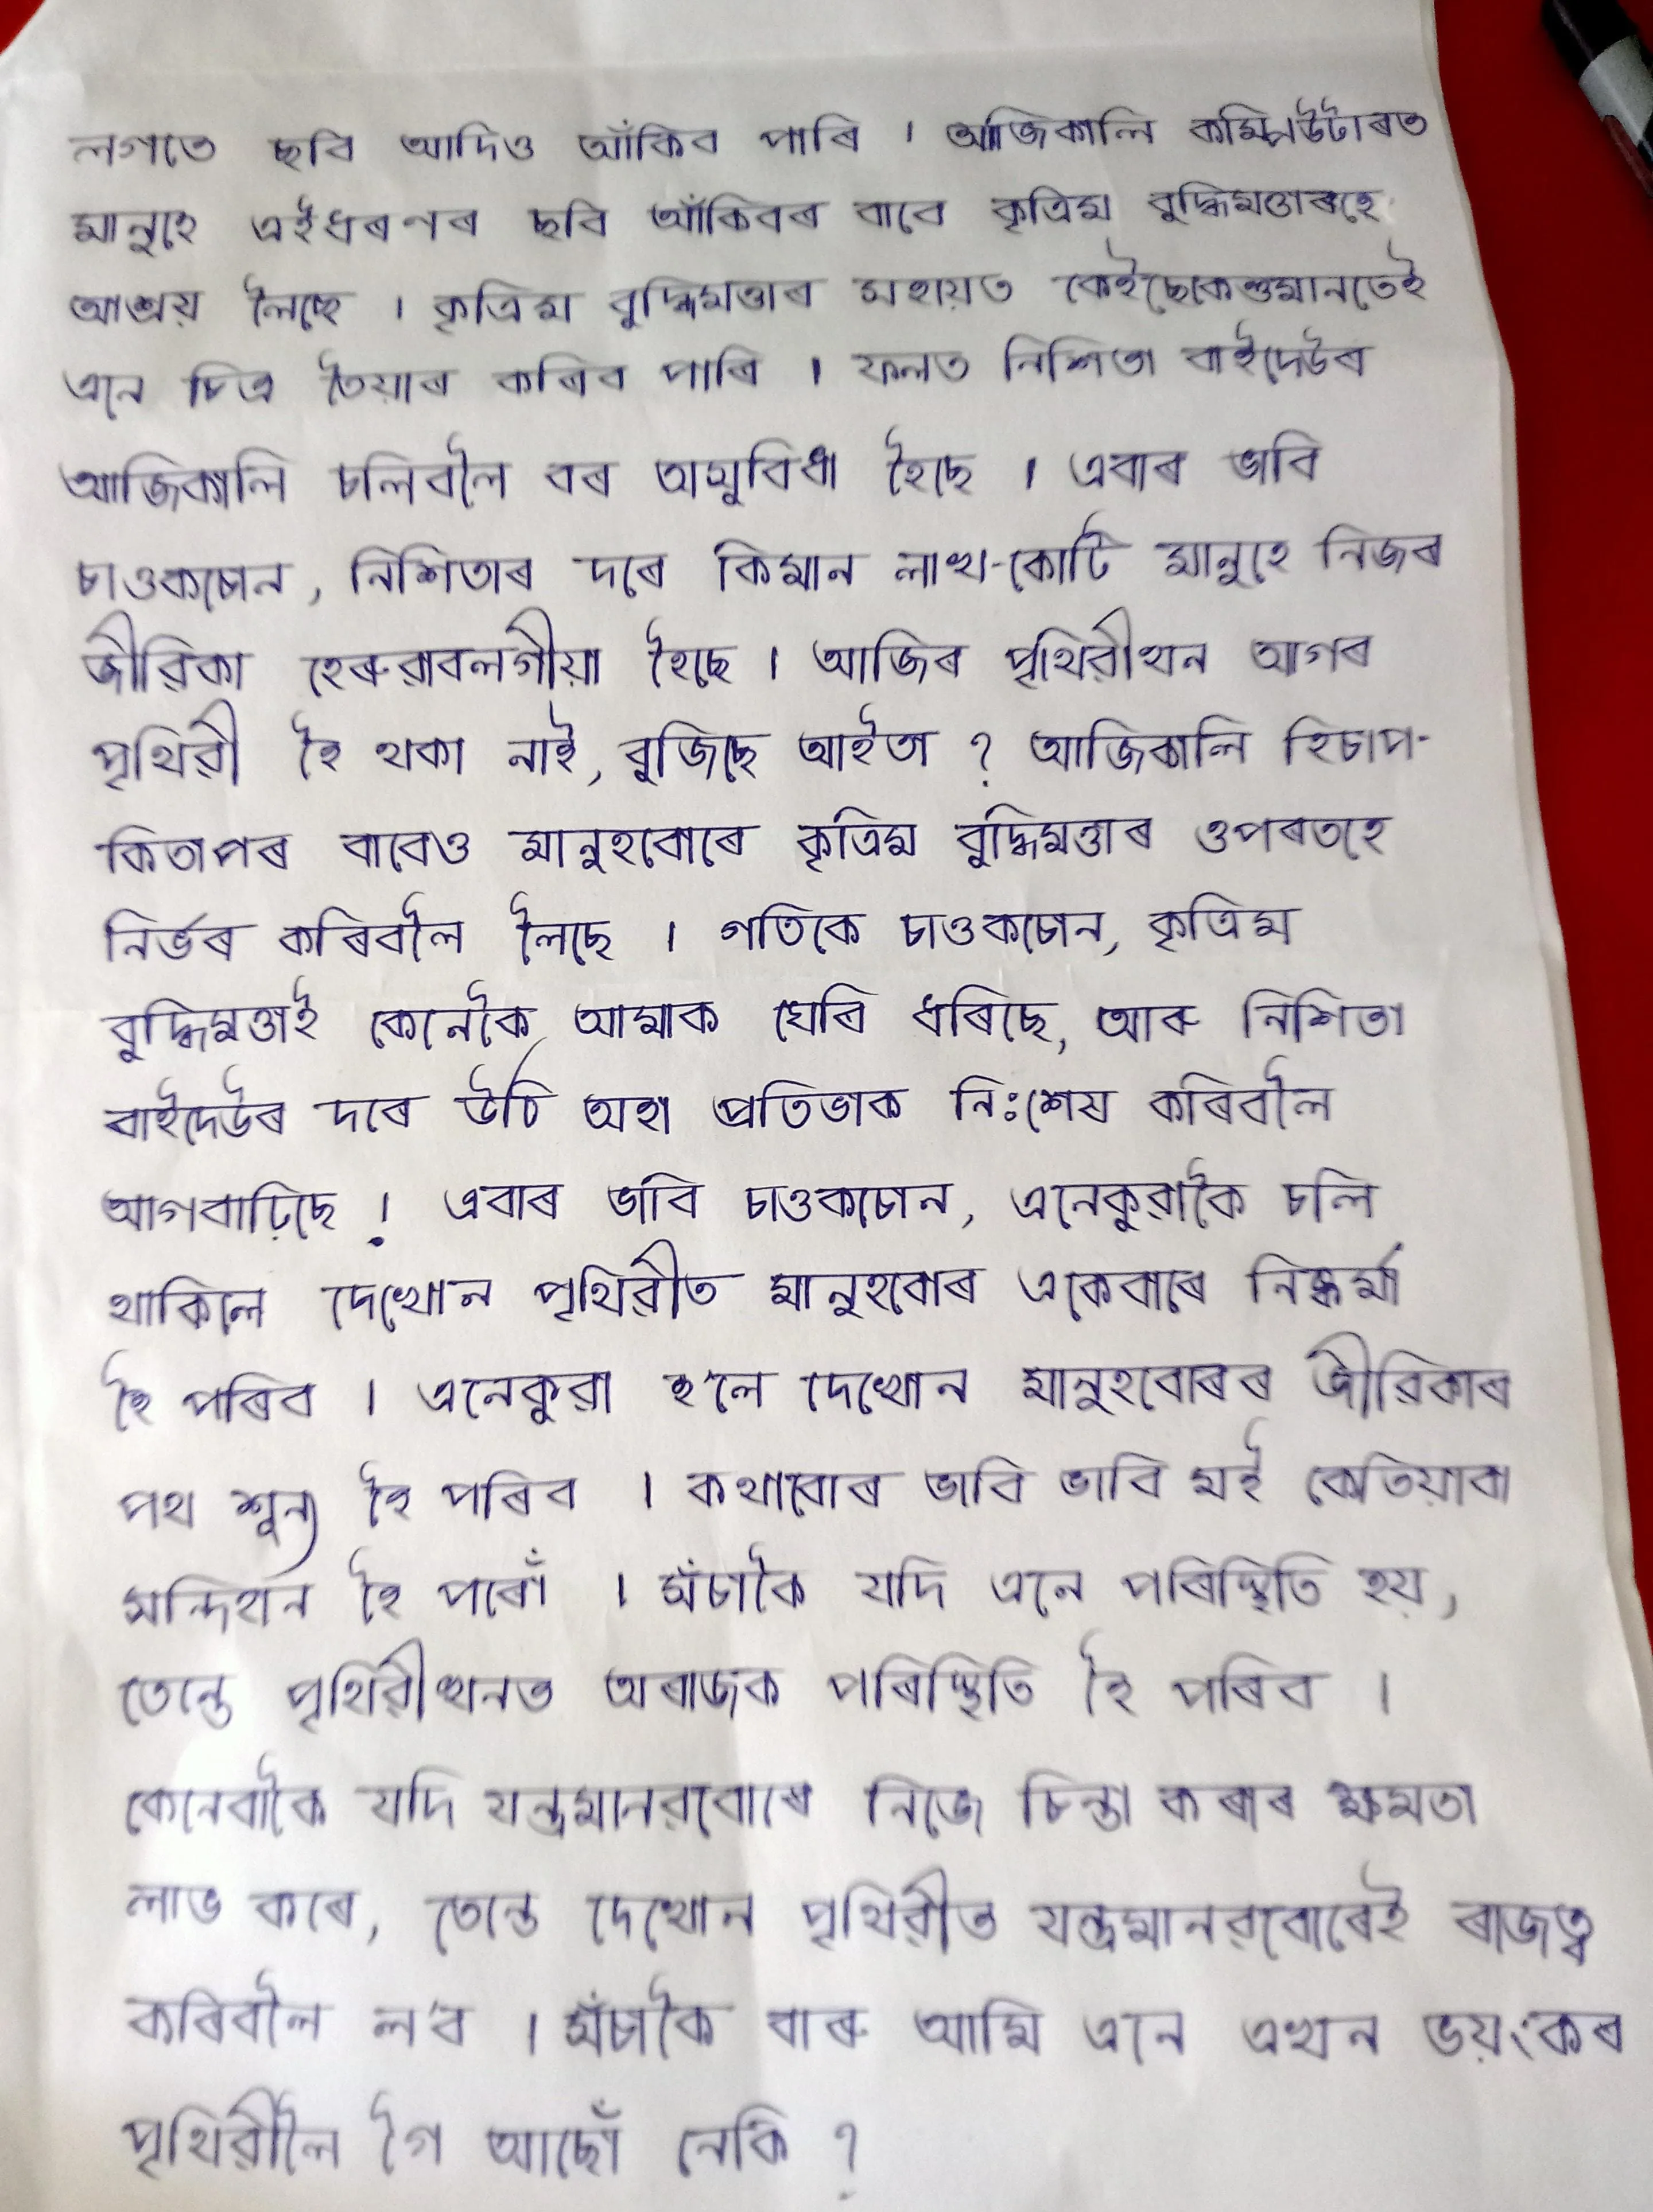 লগতে ছবি আদিও আঁকিব পাৰি । আজিকালি কম্পিউটাৰত
মানুহে এইধৰণৰ ছবি আঁকিবৰ বাবে কৃত্ৰিম বুদ্ধিমত্তাৰহে
আশ্ৰয় লৈছে । কৃত্ৰিম বুদ্ধিমত্তাৰ সহায়ত কেইছেকেণ্ডমানতেই
এনে চিত্ৰ তৈয়াৰ কৰিব পাৰি । ফলত নিশিতা বাইদেউৰ
আজিকালি চলিবলৈ বৰ অসুবিধা হৈছে । এবাৰ ভাবি
চাওকচোন, নিশিতাৰ দৰে কিমান লাখ-কোটি মানুহে নিজৰ
জীৱিকা হেৰুৱাবলগীয়া হৈছে । আজিৰ পৃথিৱীখন আগৰ
পৃথিৱী হৈ থকা নাই, বুজিছে আইতা ? আজিকালি হিচাপ-
কিতাপৰ বাবেও মানুহবোৰে কৃত্ৰিম বুদ্ধিমত্তাৰ ওপৰতহে
নিৰ্ভৰ কৰিবলৈ লৈছে । গতিকে চাওকচোন, কৃত্ৰিম
বুদ্ধিমত্তাই কেনেকৈ আমাক ঘেৰি ধৰিছে, আৰু নিশিতা
বাইদেউৰ দৰে উঠি অহা প্ৰতিভাক নিঃশেষ কৰিবলৈ
আগবাঢ়িছে ! এবাৰ ভাবি চাওকচোন, এনেকুৱাকৈ চলি
থাকিলে দেখোন পৃথিৱীত মানুহবোৰ একেবাৰে নিষ্কৰ্মা
হৈ পৰিব । এনেকুৱা হ'লে দেখোন মানুহবোৰৰ জীৱিকাৰ
পথ শূন্য হৈ পৰিব । কথাবোৰ ভাবি ভাবি মই কেতিয়াবা
সন্দিহান হৈ পৰোঁ । সঁচাকৈ যদি এনে পৰিস্থিতি হয়,
তেন্তে পৃথিৱীখনত অৰাজক পৰিস্থিতি হৈ পৰিব ।
কেনেবাকৈ যদি যন্ত্ৰমানৱবোৰে নিজে চিন্তা কৰাৰ ক্ষমতা
লাভ কৰে, তেন্তে দেখোন পৃথিৱীত যন্ত্ৰমানৱবোৰেই ৰাজত্ব
কৰিবলৈ ল'ব । সঁচাকৈ বাৰু আমি এনে এখন ভয়ংকৰ
পৃথিৱীলৈ গৈ আছোঁ নেকি ?